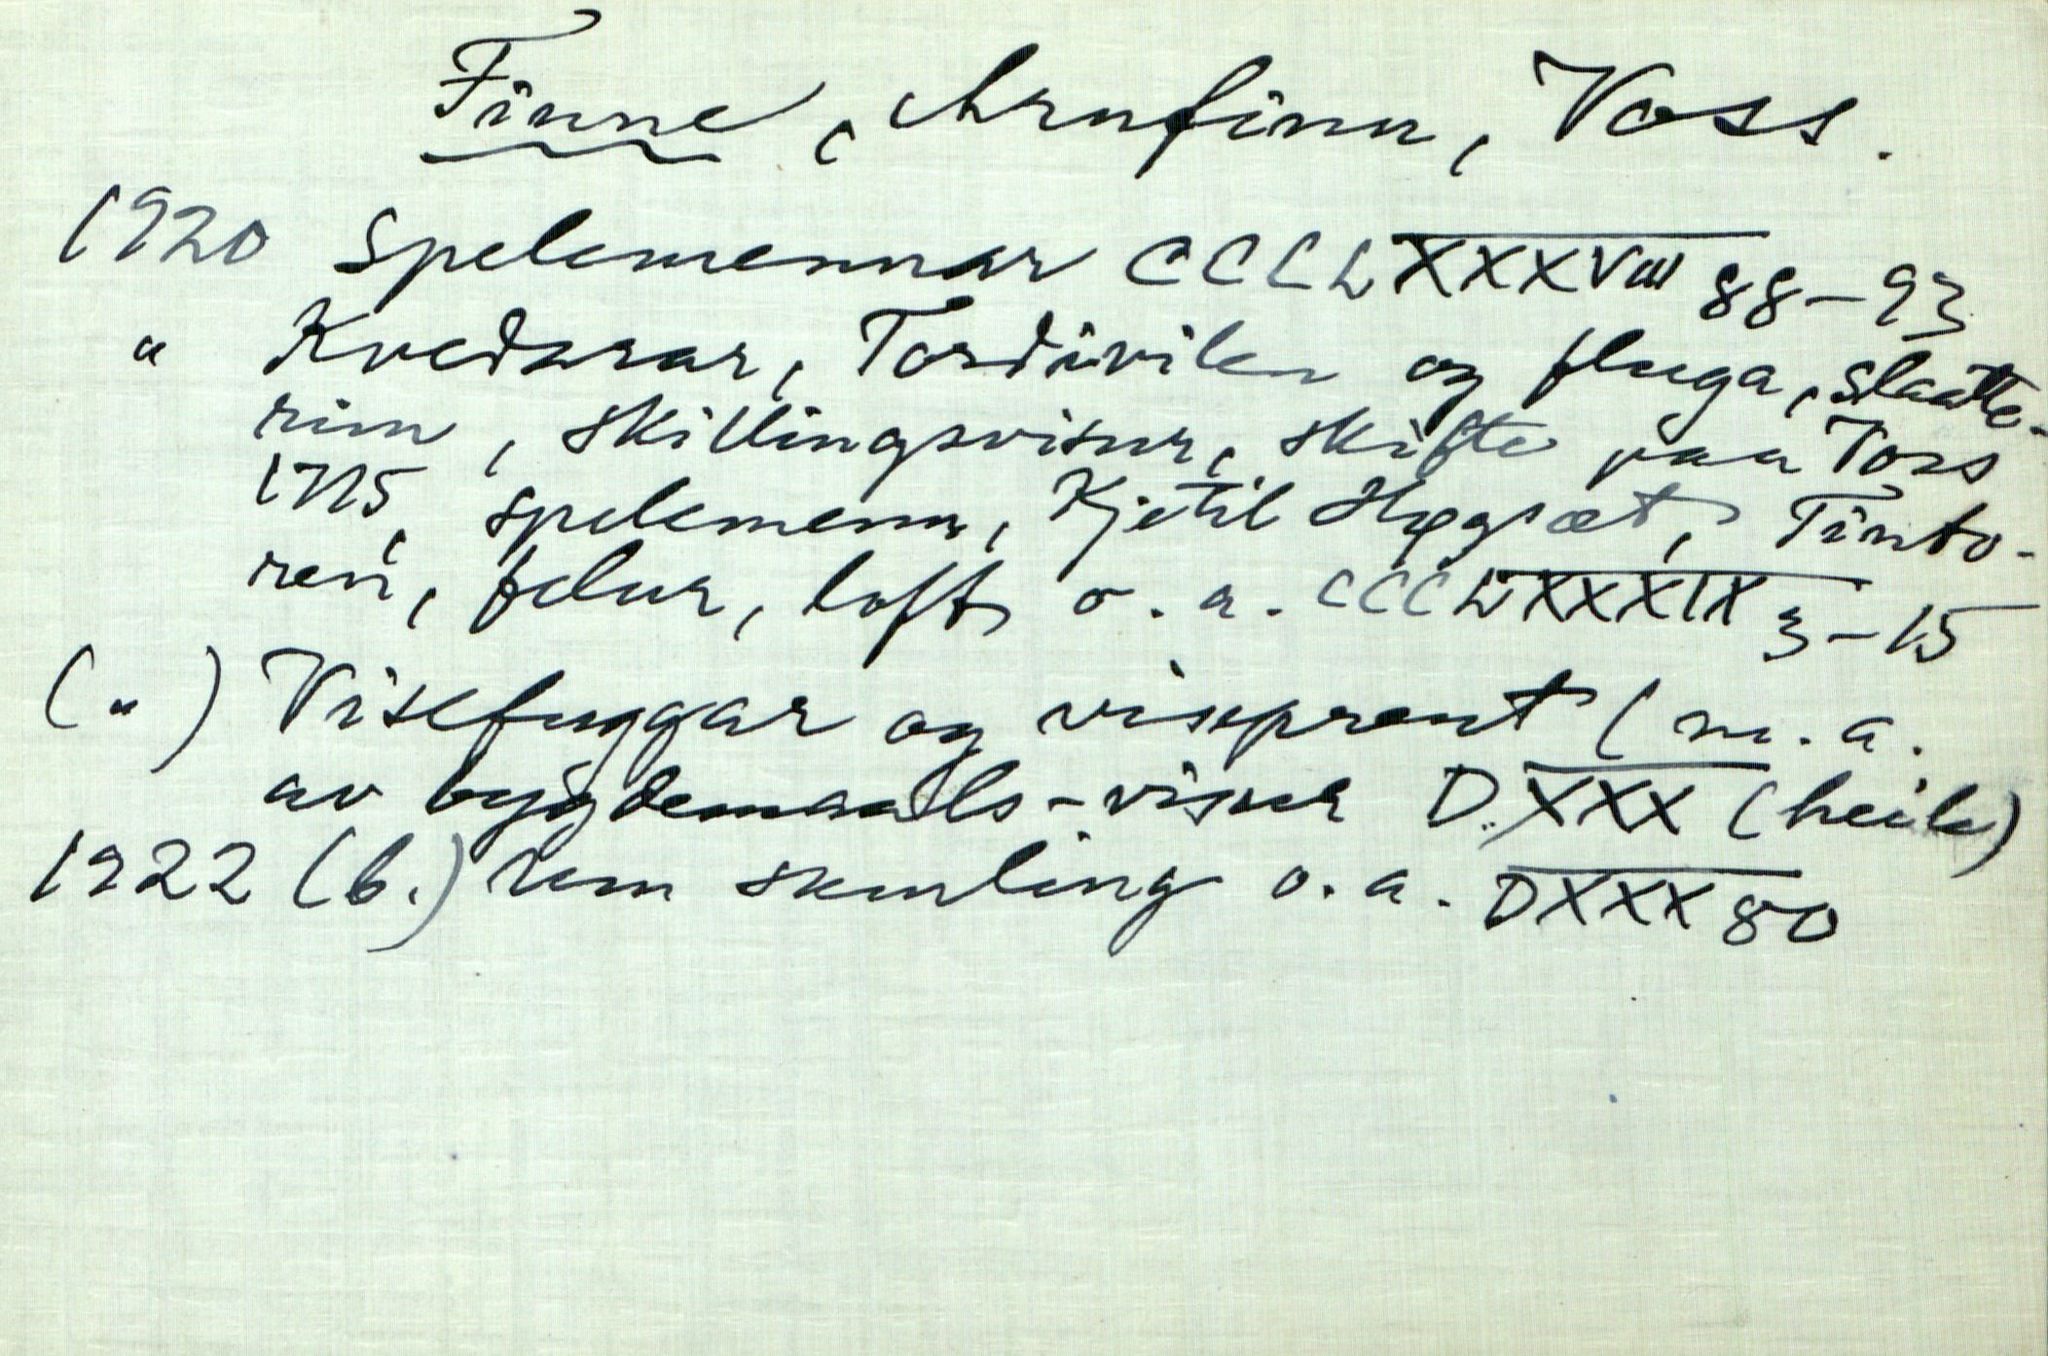 Finne, Arnfinn, Voss.
1920 Spelemennar CCCLXXXVIII 88-93
" Kvedarar, Tordivilen og fluga, Slaatte-
rim, skillingsvisur, skifte paa Voss
1775, spelemenn, Kjetil Flogsæt, Tinbo-
ren, felur, loft o. a. CCCLXXXIX 3-15
(") Visefuggar og viseprent (m. a.
av bygdemaals-visur D.XXX (heile)
1922 (b.) Um samling o. a. DXXX 80